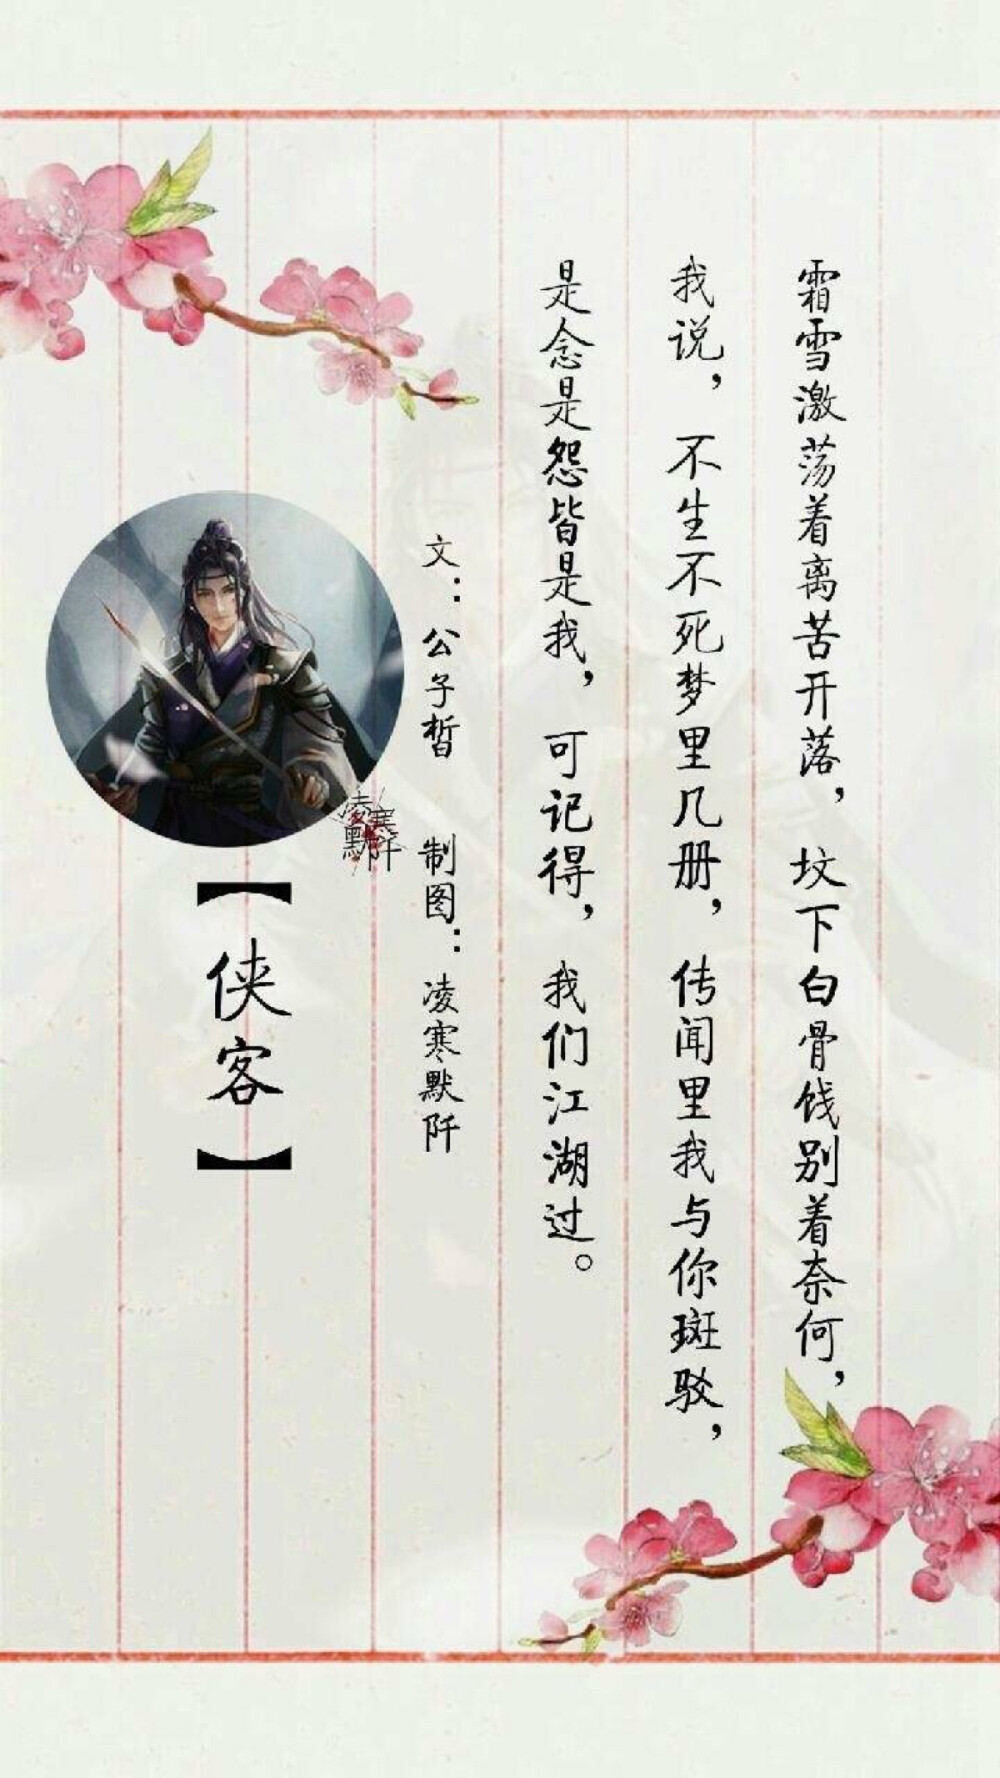 霜雪激荡着离苦开落，坟下白骨饯别着奈何，
我说，不生不死梦里几册，传闻里我与你斑驳，
是念是怨皆是我，可记得，我们江湖过。
文：公子皙 制图：凌寒默阡
凌寒默阡
【侠客】